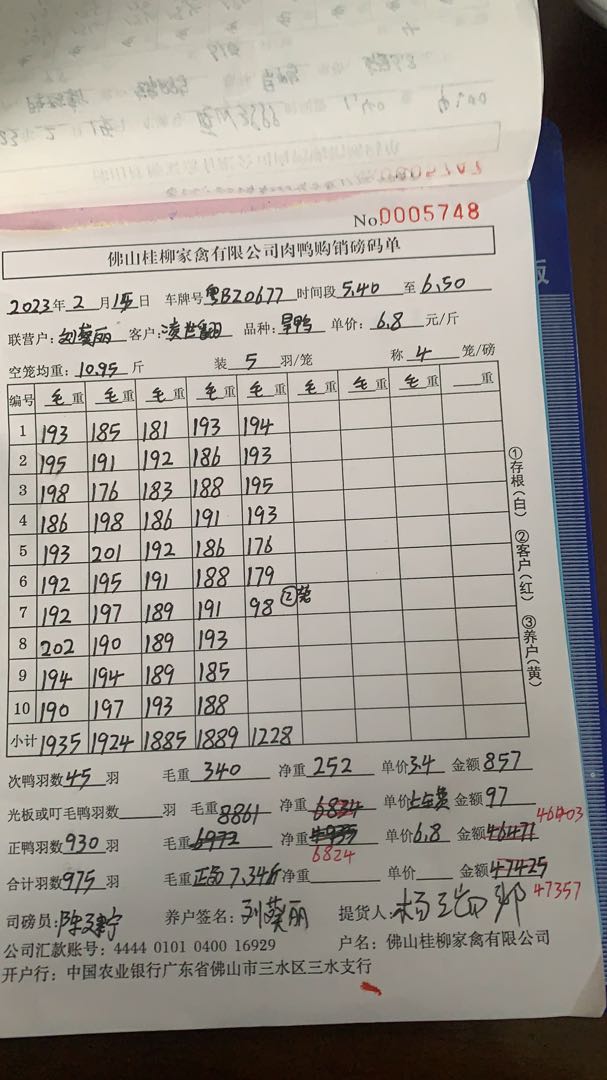 No.0005748
佛山桂柳家禽有限公司肉鸭购销磅码单
2023年 2 月 15 日 车牌号 粤BZ0677 时间段 5.40 至 6.50
联营户: 刘葵丽 客户: 凌世 品种: 旱鸭 单价: 6.8 元/斤
空笼均重: 10.95 斤 装 5 羽/笼 称 4 笼/磅
编号 毛重 毛重 毛重 毛重 毛重 毛重 毛重 毛重 重
1 193 185 181 193 194
2 195 191 192 186 193
3 198 176 183 188 195
4 186 198 186 191 193
5 193 201 192 186 176
6 192 195 191 188 179
7 192 197 189 191 98 ②笼
8 202 190 189 193
9 194 194 189 185
10 190 197 193 188
小计 1935 1924 1885 1889 1228
次鸭羽数 45 羽 毛重 340 净重 252 单价 3.4 金额 857
光板或叮毛鸭羽数 羽 毛重 8861 净重 单价 金额 97
46403
正鸭羽数 930 羽 毛重 净重 单价 6.8 金额 46471
6824
合计羽数 975 羽 毛重 7.34斤 净重 单价 金额 47425
47357
司磅员: 养户签名: 刘葵丽 提货人:
公司汇款账号: 4444 0101 0400 16929 户名: 佛山桂柳家禽有限公司
开户行: 中国农业银行广东省佛山市三水区三水支行
①存根(白) ②客户(红) ③养户(黄)